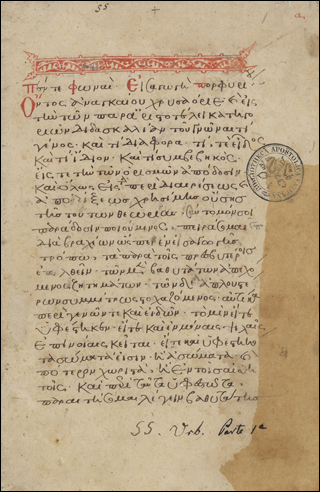 55
+
a.
Πέντε φωναί. Εἰσαγωγὴ πορφυρί
Ὄντος ἀναγκαίου χρυσαόριε καὶ εἰς
τὴν τῶν παρὰ ἀριστοτέλει κατηγο
ριῶν διδασκαλίαν τοῦ γνῶναι τί
γένος. καὶ τί διαφορά. τί τε εἶδος
καὶ τί ἴδιον. καὶ τί συμβεβηκός.
εἴς τε τὴν τῶν ὁρισμῶν ἀπόδοσιν
καὶ ὅλως εἰς τὰ περὶ διαιρέσεως καὶ
ἀποδείξεως χρησίμης οὔσης
τῆς τούτων θεωρίας. σύντομόν σοι
παράδοσιν ποιούμενος. πειράσομαι
διὰ βραχέων ὥσπερ ἐν εἰσαγωγῆς
τρόπῳ. τὰ παρὰ τοῖς πρεσβυτέροις
ἐπελθεῖν. τῶν μὲν βαθυτέρων ἀπεχό
μενος ζητημάτων. τῶν δ' ἁπλουστέ
ρων συμμέτρως στοχαζόμενος. αὐτίκα
περὶ γενῶν τε καὶ εἰδῶν. τὸ μὲν εἴτε
ὑφέστηκεν. εἴτε καὶ ἐν μόναις ψιλαῖς
ἐπινοίαις κεῖται. εἴτε καὶ ὑφεστηκό
τα σώματά ἐστιν ἢ ἀσώματα. καὶ
πότερον χωριστὰ ἢ ἐν τοῖς αἰσθη
τοῖς. καὶ περὶ ταῦτα ὑφεστῶτα.
παραιτήσομαι λέγειν βαθυτάτης
55. Urb. Parte 1ª